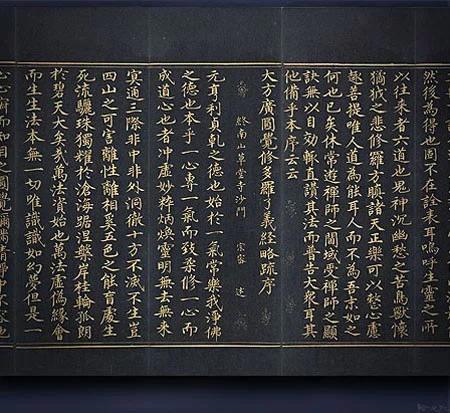 然後為得也固不在詮耒耳嗚呼生靈之所
以往來者六道也鬼神沉幽愁之苦鳥獸懷
獝狘之悲修羅方瞋諸天正樂可以整心慮
趣菩提唯人道為能耳人而不為吾末如之
何也已矣休常遊禪師之閫域受禪師之顯
訣無以自効輒直讃其法而普告大衆耳其
他備乎本序云云
大方廣圓覺修多羅了義經略疏序
終南山草堂寺沙門 宗密 述
元亨利貞乾之德也始於一氣常樂我淨佛
之德也本乎一心專一氣而致柔修一心而
成道心也者沖虛妙粹炳煥靈明無去無來
冥通三際非中非外洞徹十方不滅不生豈
四山之可害離性離相奚五色之能盲處生
死流驪珠獨耀於滄海踞涅槃岸桂輪孤朗
於碧天大矣哉萬法資始也萬法虛偽緣會
而生生法本無一切唯識識如幻夢但是一
心心寂而知目之圓覺彌滿清淨中不容他